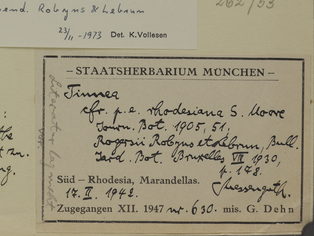 end. Robyns & Lebrun
23/11 -1973 Det. K. Vollesen
262/53
– STAATSHERBARIUM MÜNCHEN –
Tinnea
cfr. p. e. rhodesiana S. Moore
Journ. Bot. 1905, 51;
Rogersii Robyns et Lebrun, Bull.
Jard. Bot. Bruxelles VIII 1930,
p. 178.
Süd – Rhodesia, Marandellas.
17. II. 1942. Suessenguth.
Zugegangen XII. 1947 nr. 630. mis. G. Dehn